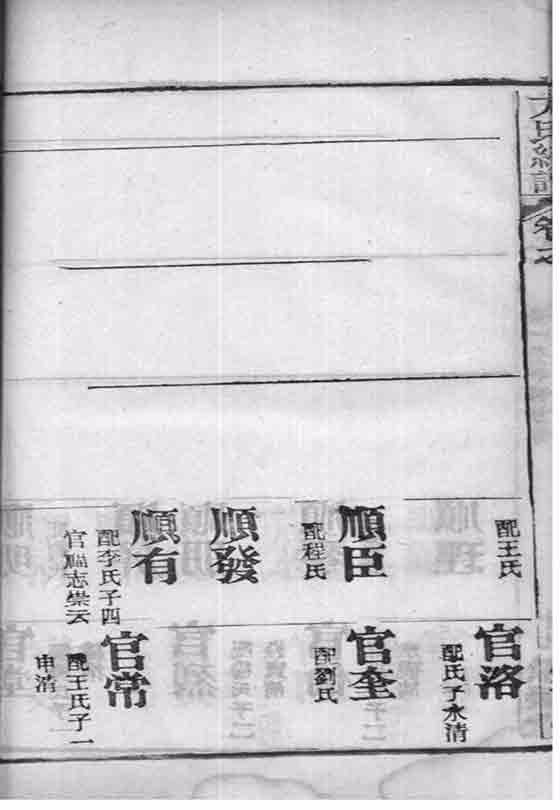 氏總譜
卷之
配王氏
順臣
配程氏
順發
順有
配李氏子四
官福志崇云
官洛
配氏子永清
官奎
配劉氏
官常
配王氏子一
申清